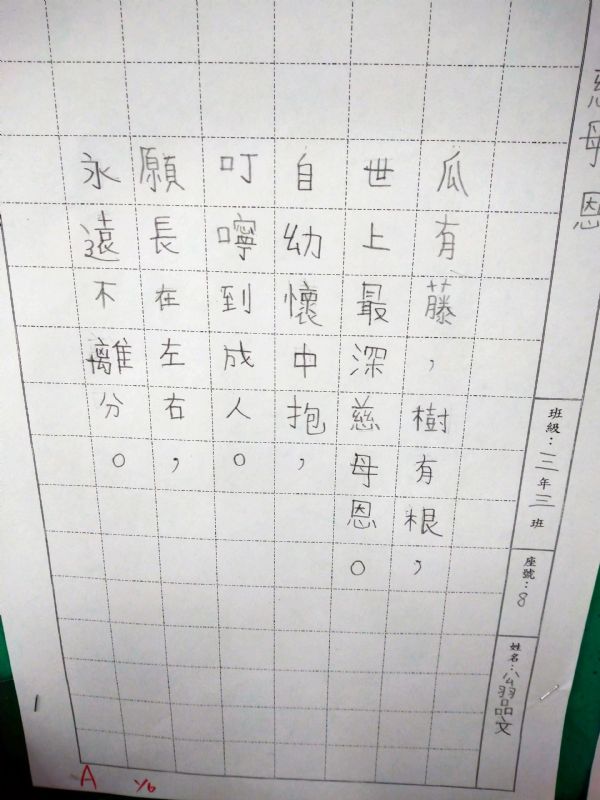 慈母恩
班級：三年三班
座號：8
姓名：翁品文
瓜有藤，樹有根，
世上最深慈母恩。
自幼懷中抱，
叮嚀到成人。
願長在左右，
永遠不離分。
A 1/6